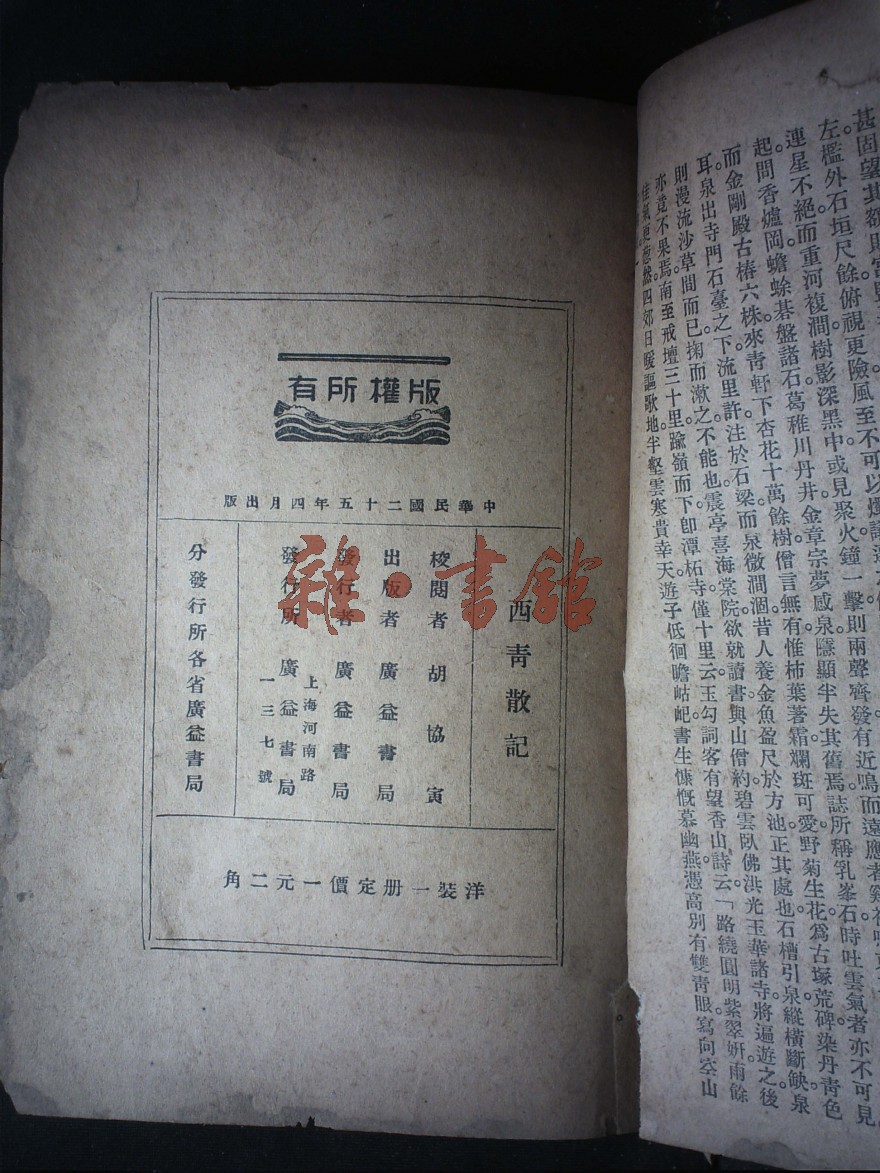 甚固望其額則
左檻外石垣尺餘俯視更險風至不可以
連星不絕而重河複澗樹影深黑中或見聚火鐘一擊則兩聲齊發有近鳴而遠應者
起問香爐岡蟾蜍碁盤諸石葛稚川丹井金章宗夢感泉隱顯半失其舊焉誌所稱乳峯石時吐雲氣者亦不可見
而金剛殿古椿六株來青軒下杏花十萬餘樹僧言無有惟柿葉著霜斕斑可愛野菊生花爲古塚荒碑染丹青色
耳泉出寺門石臺之下流里許注於石梁而泉微澗涸昔人養金魚盈尺於方池正其處也石槽引泉縱橫斷缺泉
則漫流沙草間而已掬而漱之不能也震亭喜海棠院欲就讀書與山僧約碧雲臥佛洪光玉華諸寺將遍遊之後
亦竟不果焉南至戒壇三十里踰嶺而下卽潭柘寺僅十里云玉勾詞客有望香山詩云「路繞圓明紫翠妍雨餘
佳氣更葱然四郊日暖謳歌地半壑雲寒貴幸天遊子低徊瞻岵屺書生慷慨慕幽燕憑高別有雙青眼寫向空山
版權所有
中華民國二十五年四月出版
西青散記
校閱者 胡協寅
出版者 廣益書局
發行者 廣益書局
上海河南路
發行所 廣益書局
一三七號
分發行所各省廣益書局
洋裝一册定價一元二角
雜·書館